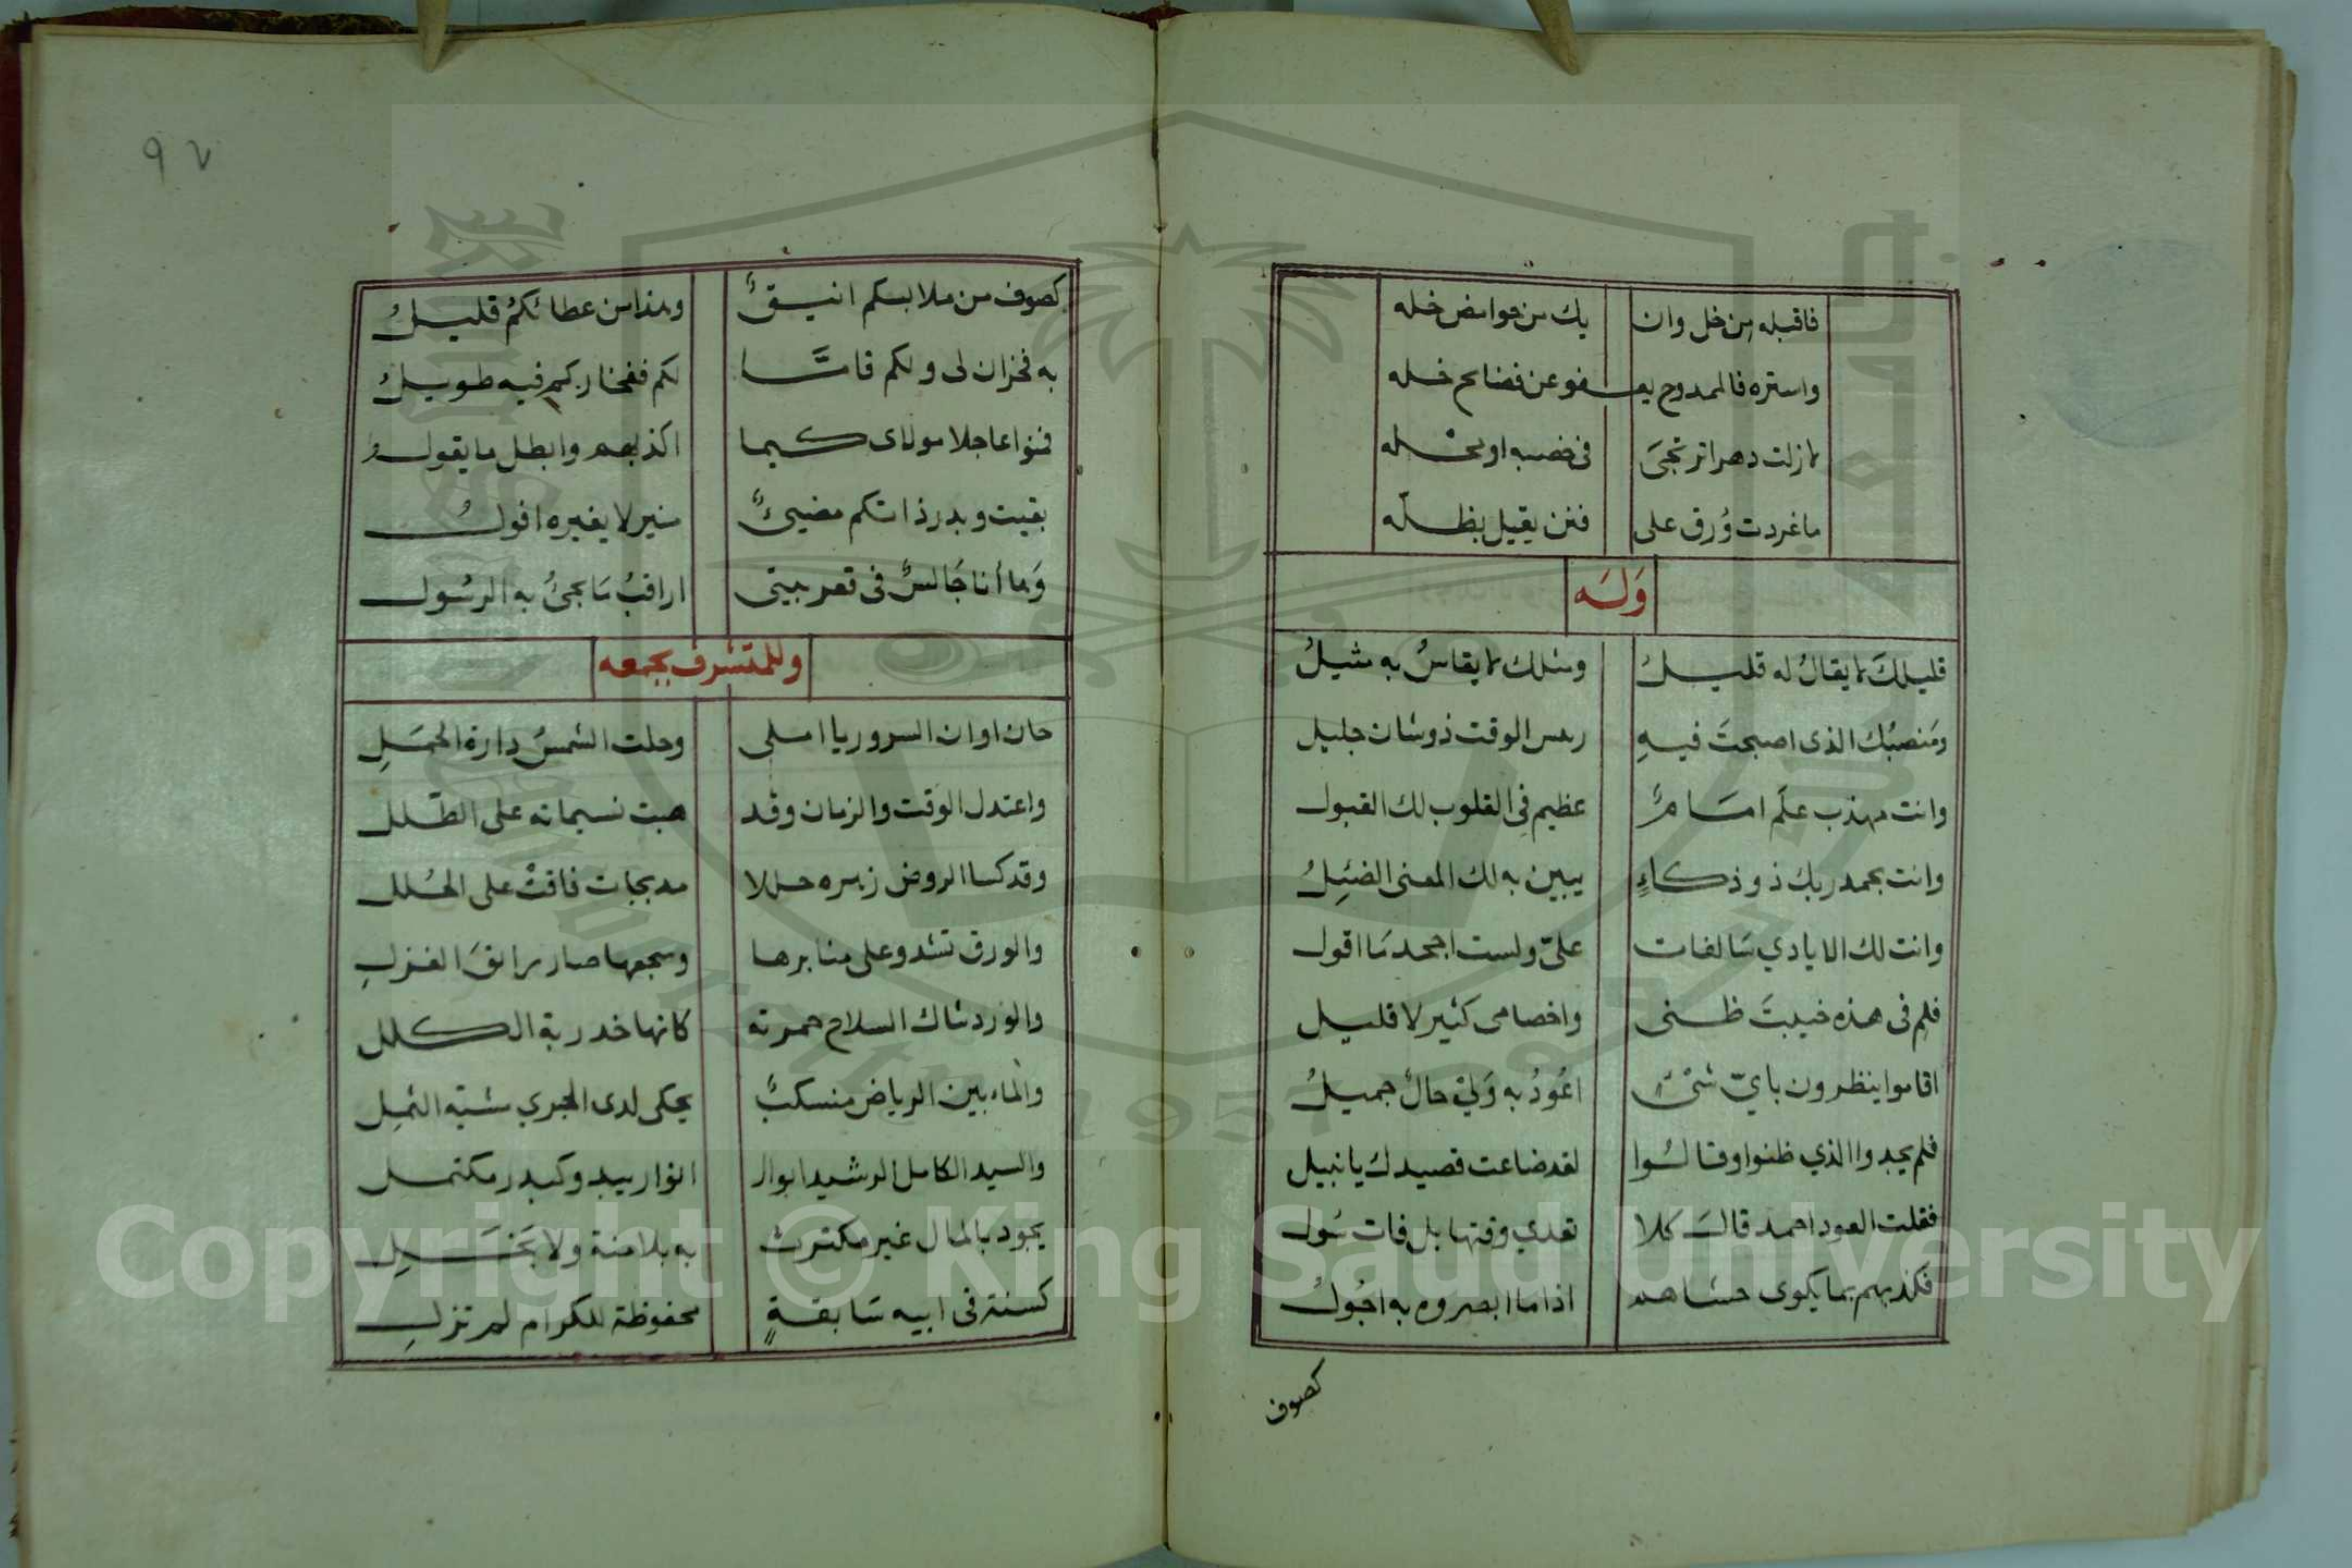 فاقبله من خل وان يك من حوامض خله
واستره فالممدوح يعـفو عن فضايح خله
لا زلت دهرا ترتجىَ فى خصبه او محله
ما غردت وُرق على فنن يقيل بظله
وَلَه
قليلكَ لا يقالُ له قليلُ ومثلك لا يقاسُ به مثيلُ
ومَنصبُك الذى اصبحتَ فيهِ رءس الوقت ذو شان جليل
وانت مهذب علَم امَامٌ عظيم فى القلوب لك القبول
وانت بحمد ربك ذو ذكاءٍ يبين به لك المعنى الضئِيلُ
وانت لك الايادي سَالفات علىّ ولست اجحد مَا اقول
فلم فى هذه خيبتَ ظنى واخصامى كثير لا قليل
اقاموا ينظرون بايّ شئٍ اعُودُ به وَلي حالٌ جميلُ
فلم يجدوا الذي ظنوا وقالُوا لقد ضاعت قصيدك يا نبيل
فقلت العود احمد قالَ كلا تعدي وقتها بل فات سُول
فكذبهم بما يكوى حشاهم اذا ما ابصروه به اجُولُ
كصوف
٩٧
كصوف من ملابسكم انيقٌ وهذا من عطائكمُ قليلُ
به فخران لى ولكم قامَّا لكم ففخاركم فيه طويلُ
فمنوا عاجلا مولاى كيما اكذبهم وابطل ما يقولُ
بقيت وبدر ذاتكم مضيىءٌ منير لا يغيره افولُ
وَها أنا جَالسٌ فى قعر بيتى اراقبُ مَا يجئُ به الرسُول
وللمتشرف بجمعه
حان اوان السرور يا املى وحلت الشمسُ دارة الحمَلِ
واعتدل الوقت والزمان وقد هبت نسيماته على الطّلل
وقد كسا الروض زهره حللا مدبجات فاقتْ على الحُلل
والورق تشدو على منابرها وسجعها صار رائقَ الغزلِ
والورد شاك السلاح حمرته كانها خدربة الكلل
والماء بين الرياض منسكبٌ يحكى لدى الجري مشية الثمِل
والسيد الكامل الرشيد ابوالـ انوار يبدو كبدر مكتمل
يجود بالمال غير مكترث به بلا منة ولا بَخَلِ
كسنة فى ابيه سَابقةٍ محفوظة للكرام لم تزلِ
Copyright © King Saud University
1957